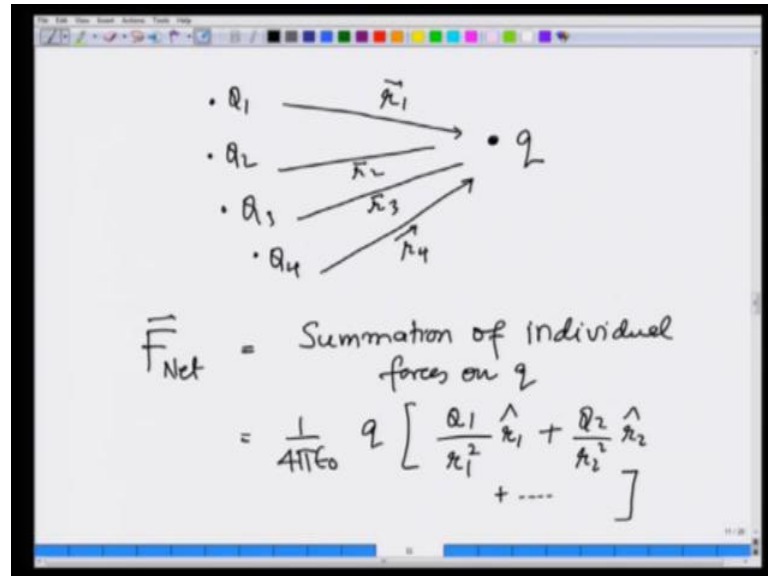 File Edit View Insert Actions Tools Help
B I
• Q₁ r⃗₁
• q
• Q₂ r⃗₂
• Q₃ r⃗₃
• Q₄ r⃗₄
F⃗Net = Summation of individual
forces on q
= 1/4πε₀ q [ Q₁/r₁² r̂₁ + Q₂/r₂² r̂₂
+ ---- ]